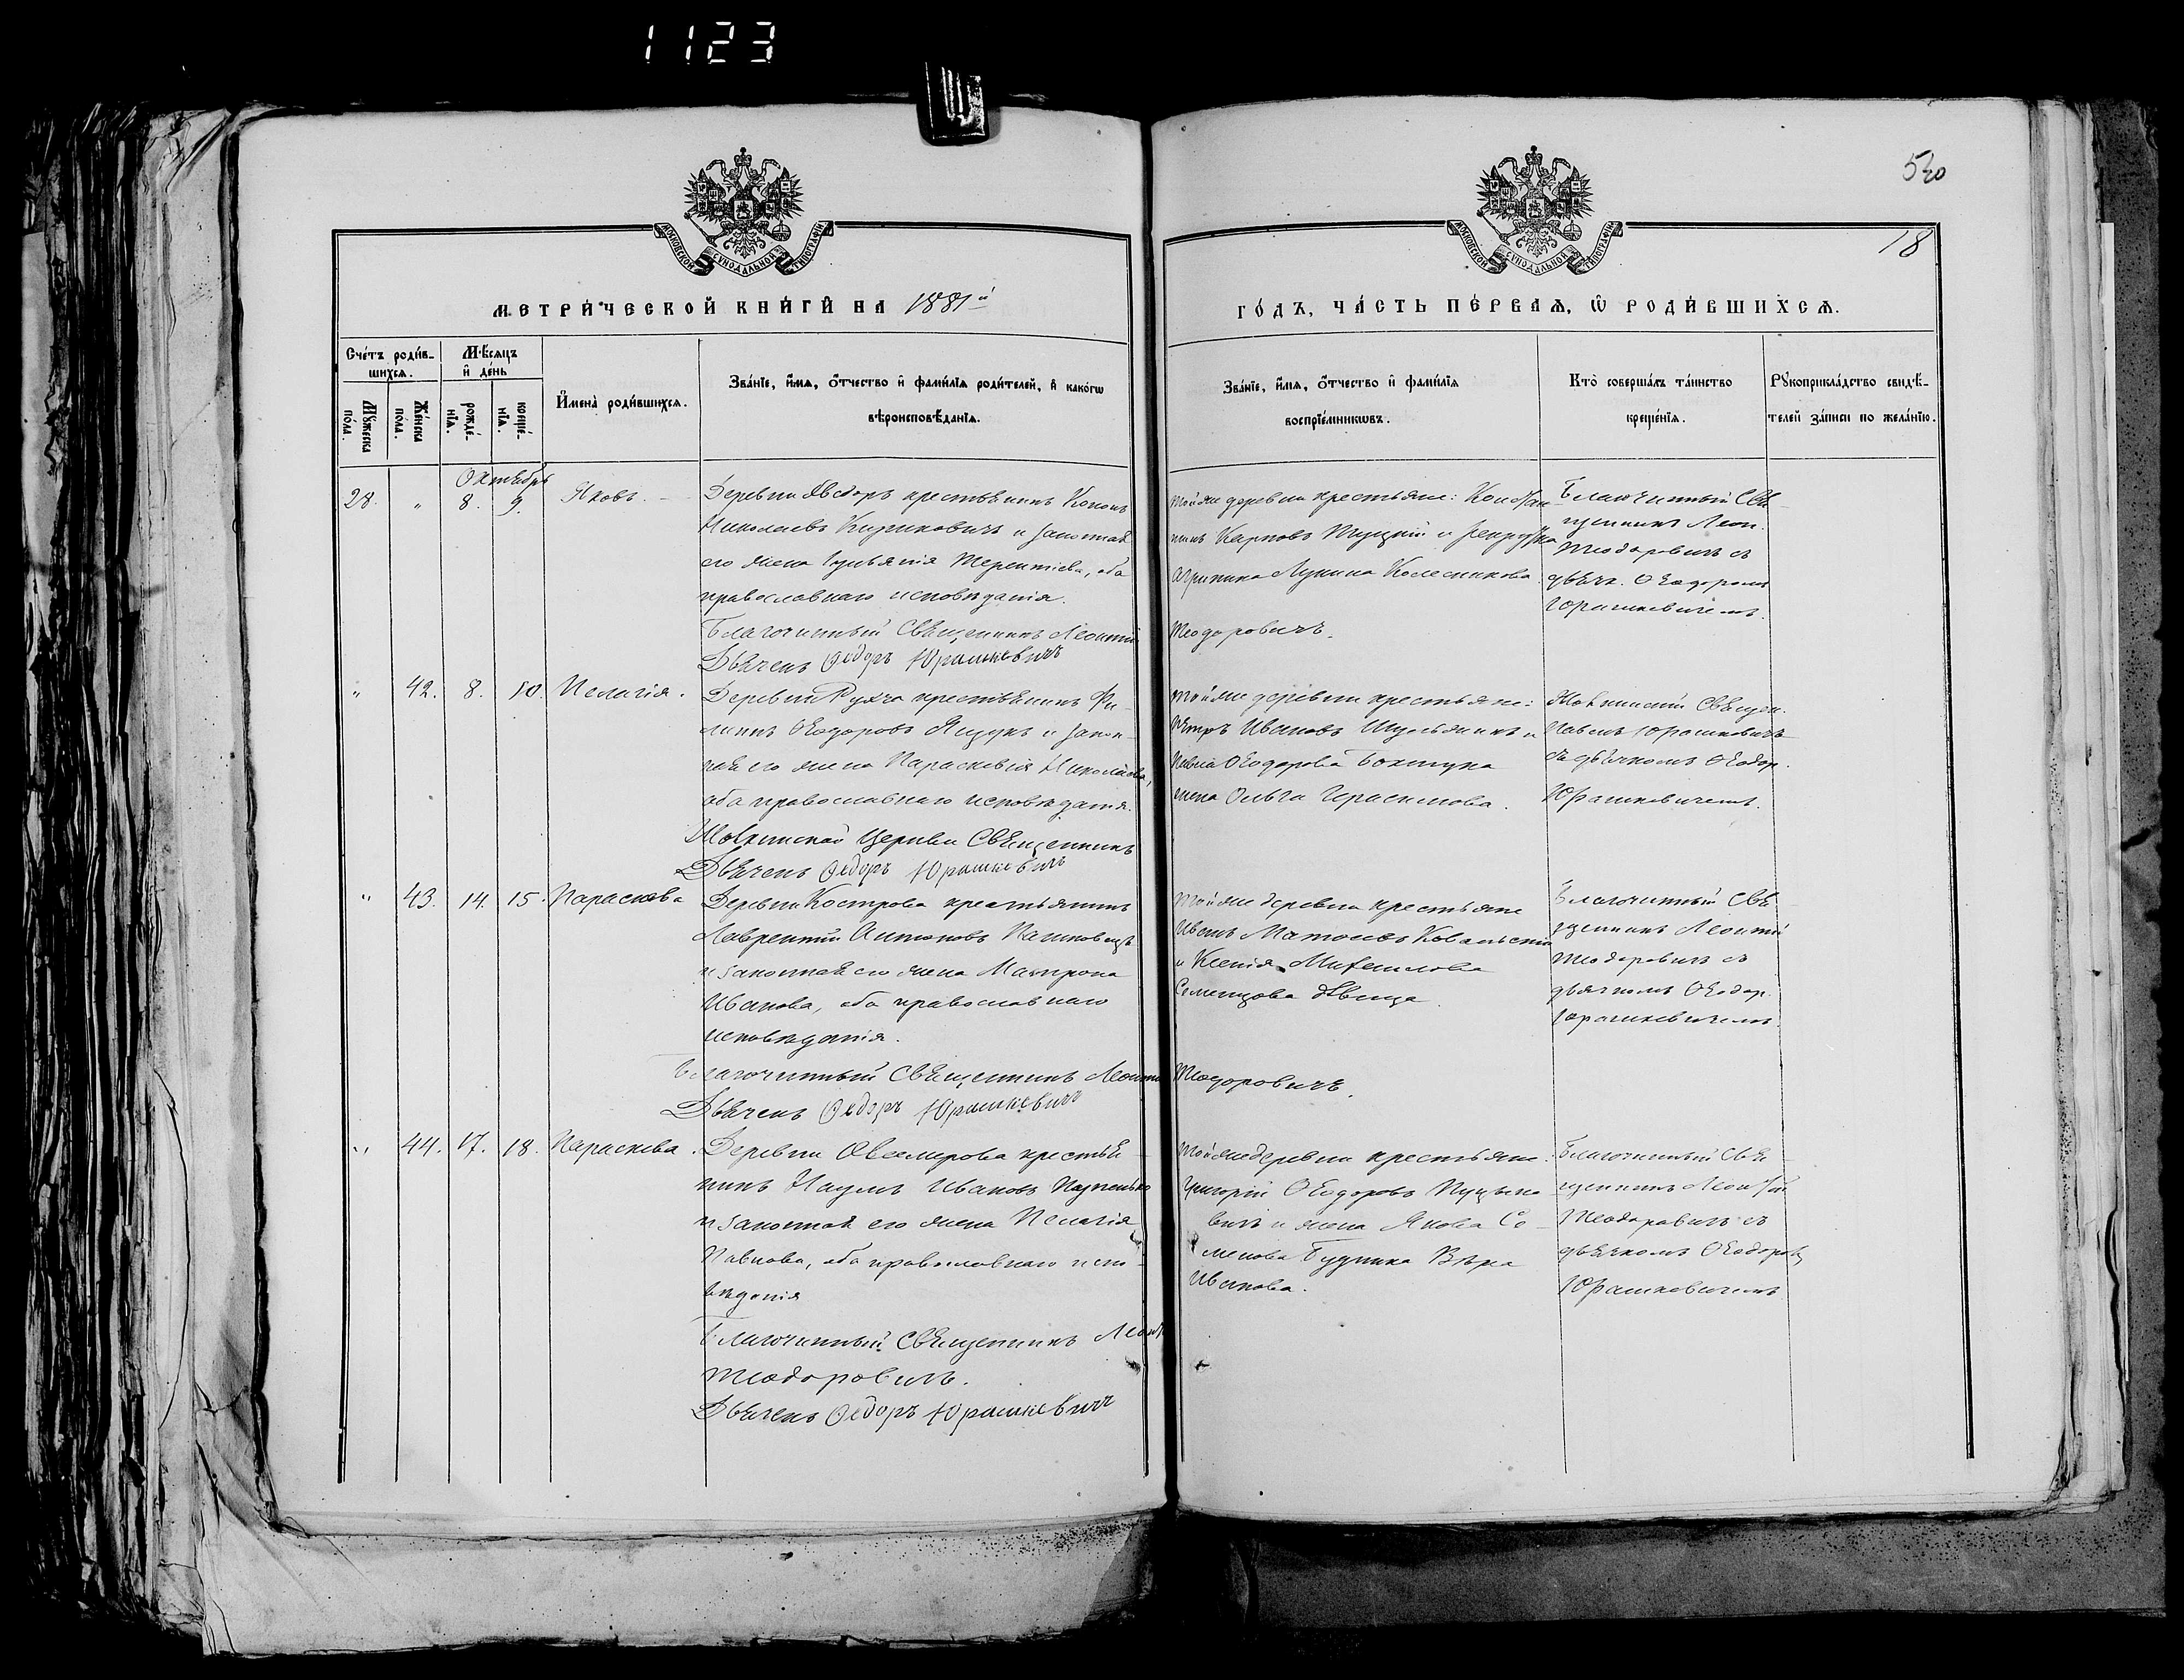 1123
520
18
МОСКОВСКОЙ СѴНОДАЛЬНОЙ ТИПОГРАФІИ
МОСКОВСКОЙ СѴНОДАЛЬНОЙ ТИПОГРАФІИ
МЕТРИЧЕСКОЙ КНИГИ НА 1881й
ГОДЪ, ЧАСТЬ ПЕРВАЯ, Ѡ РОДИВШИХСЯ.
Счетъ родив-
шихся.
Мужеска пола.
Женска пола.
Мѣсяцъ
и день
рожде-
нія.
креще-
нія.
Имена родившихся.
Званіе, имя, отчество и фамилія родителей, и какогѡ
вѣроисповѣданія.
Званіе, имя, отчество и фамилія
воспріемникѡвъ.
Кто совершалъ таинство
крещенія.
Рукоприкладство свидѣ-
телей записи по желанію.
Октябрь
28. " 8. 9. Яковъ.
Деревни крестьянинъ Кононъ
Николаевъ и законная
его жена Терентіева, оба
православнаго исповѣданія.
Благочинный Священникъ Леонтій
Дьячекъ Ѳедоръ Юрашкевичъ
Той же деревни крестьяне: Констан-
тинъ Карповъ и
Агрипина Лукина Колесникова
Теодоровичъ.
Благочинный Свя-
щенникъ Леон.
Теодоровичъ съ
дьячк. Ѳеодоромъ
Юрашкевичемъ.
" 42. 8. 10. Пелагія.
Деревни крестьянинъ Фи-
липпъ Ѳеодоровъ Ящукъ и закон-
ная его жена Параскевія Николаева,
оба православнаго исповѣданія.
Церкви Священникъ
Дьячекъ Ѳедоръ Юрашкевичъ
Той же деревни крестьяне:
Петръ Ивановъ и
Ѳеодорова
жена Ольга Герасимова.
Священ.
Павелъ Юрашкевичъ
съ дьячкомъ Ѳеодор.
Юрашкевичемъ.
" 43. 14. 15. Параскева
Деревни Кострова крестьянинъ
Лаврентій Антоновъ
и законная его жена Матрона
Иванова, оба православнаго
исповѣданія.
Благочинный Священникъ Леонтій
Дьячекъ Ѳедоръ Юрашкевичъ
Той же деревни крестьяне
Иванъ Ковальскій
и Ксенія Михаилова
дѣвица.
Теодоровичъ.
Благочинный Свя-
щенникъ Леонтій
Теодоровичъ съ
дьячкомъ Ѳеодор.
Юрашкевичемъ.
" 44. 17. 18. Параскева.
Деревни крестья-
нинъ Наумъ Ивановъ
и законная его жена Пелагія
Павлова, оба православнаго испо-
вѣданія
Благочинный Священникъ
Теодоровичъ.
Дьячекъ Ѳедоръ Юрашкевичъ
Той же деревни крестьяне:
Григорій Ѳеодоровъ
вичъ и жена Якова Се-
менова Вѣра
Иванова.
Благочинный Свя-
щенникъ Леонтій
Теодоровичъ съ
дьячкомъ Ѳеодоромъ
Юрашкевичемъ